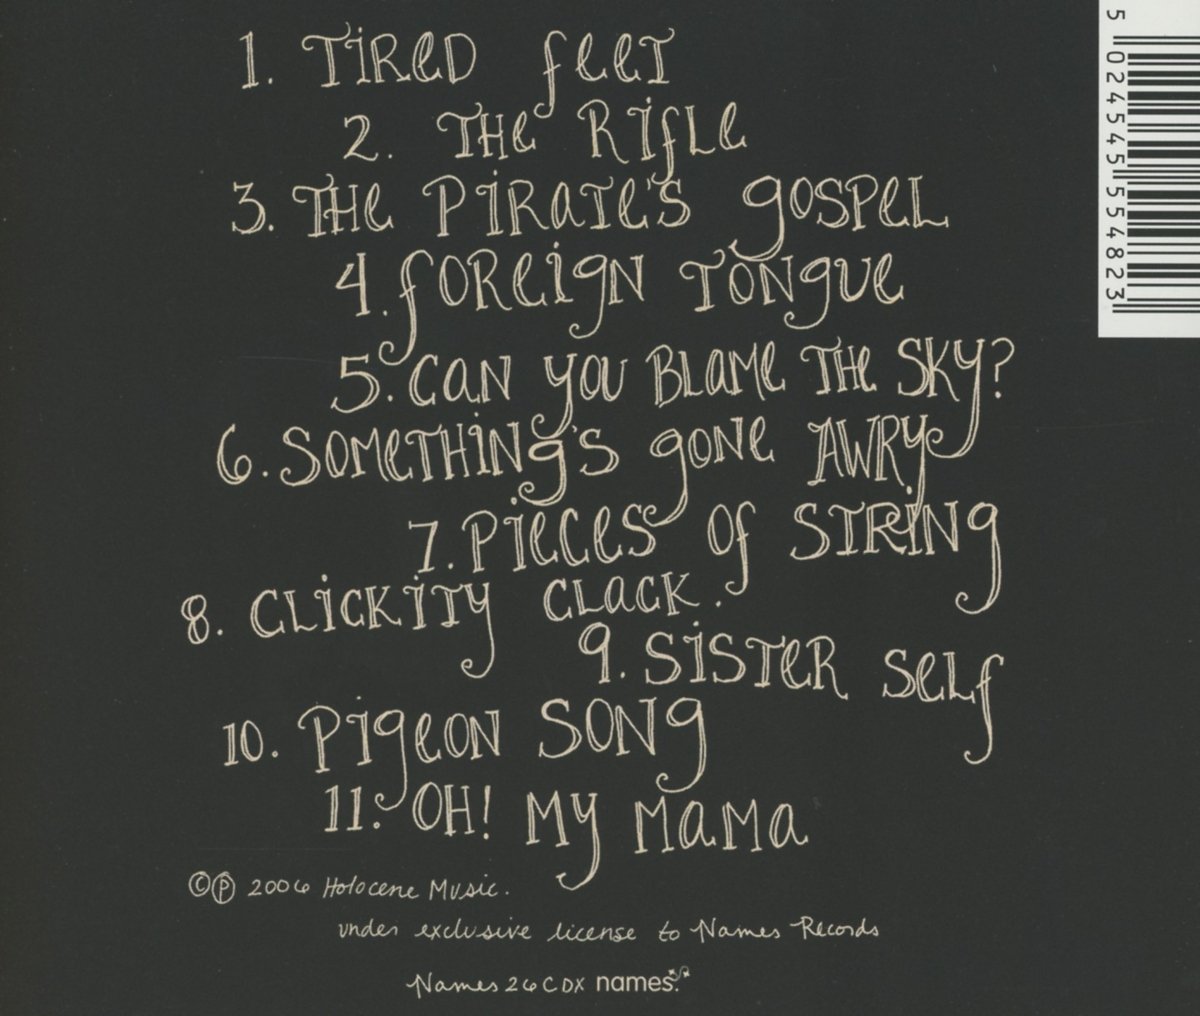 1. TIRED feeT
2. THe RifLe
3. THe PiRaTe's gOSPeL
4. fOReigN TONgUe
5. CaN yOU BLaMe THe SKy?
6. SOMeTHiNg's gONe AWRy
7. PieCeS Of STRiNg
8. CLiCKiTy CLaCK.
9. SiSTeR SeLf
10. PigeON SONg
11. OH! My MaMa
©℗ 2006 Holocene Music.
under exclusive license to Names Records
Names26CDX names.
5 024545 554823